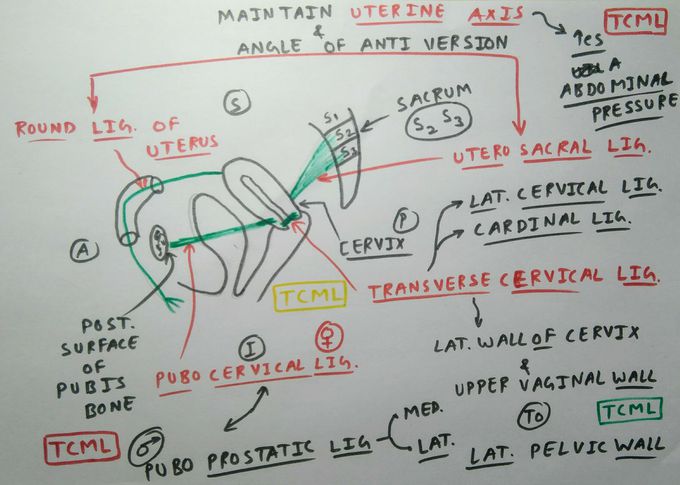 MAINTAIN UTERINE AXIS
&
ANGLE OF ANTI VERSION
TCML
↑es
A
ABDOMINAL
PRESSURE
S
SACRUM
S2 S3
S1
S2
S3
ROUND LIG. OF
UTERUS
UTERO SACRAL LIG.
LAT. CERVICAL LIG.
CARDINAL LIG.
P
CERVIX
A
TCML
TRANSVERSE CERVICAL LIG.
POST.
SURFACE
OF
PUBIS
BONE
I
♀
PUBO CERVICAL LIG.
LAT. WALL OF CERVIX
&
UPPER VAGINAL WALL
TO
TCML
LAT. PELVIC WALL
TCML
♂
PUBO PROSTATIC LIG
MED.
LAT.